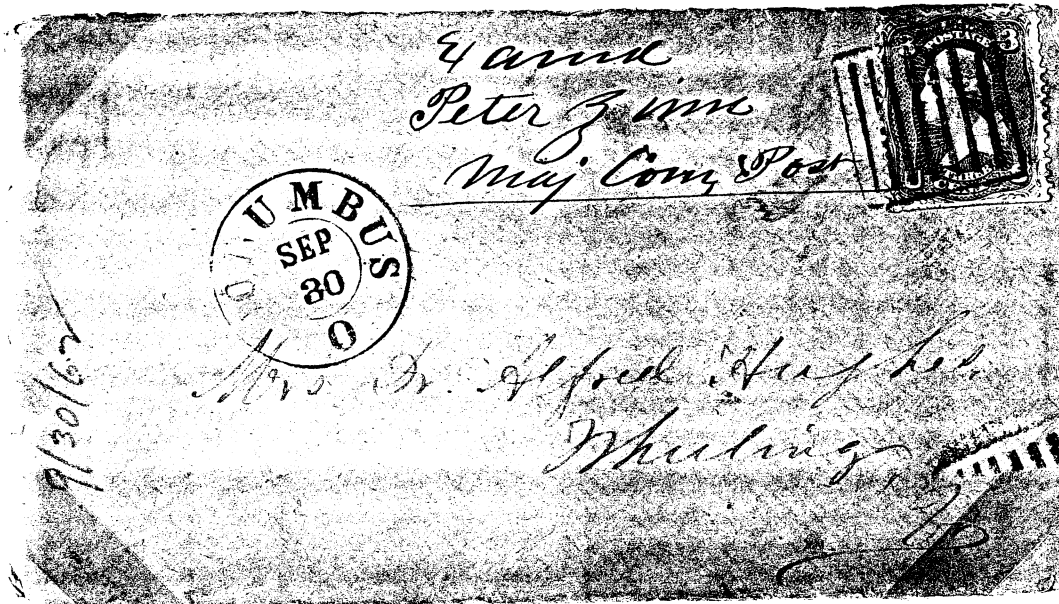 Examd
Peter Zinn
Maj Com, Post
POSTAGE
3
COLUMBUS
SEP
30
O
Mrs Dr. Alfred Hughes
Wheeling
9/30/62